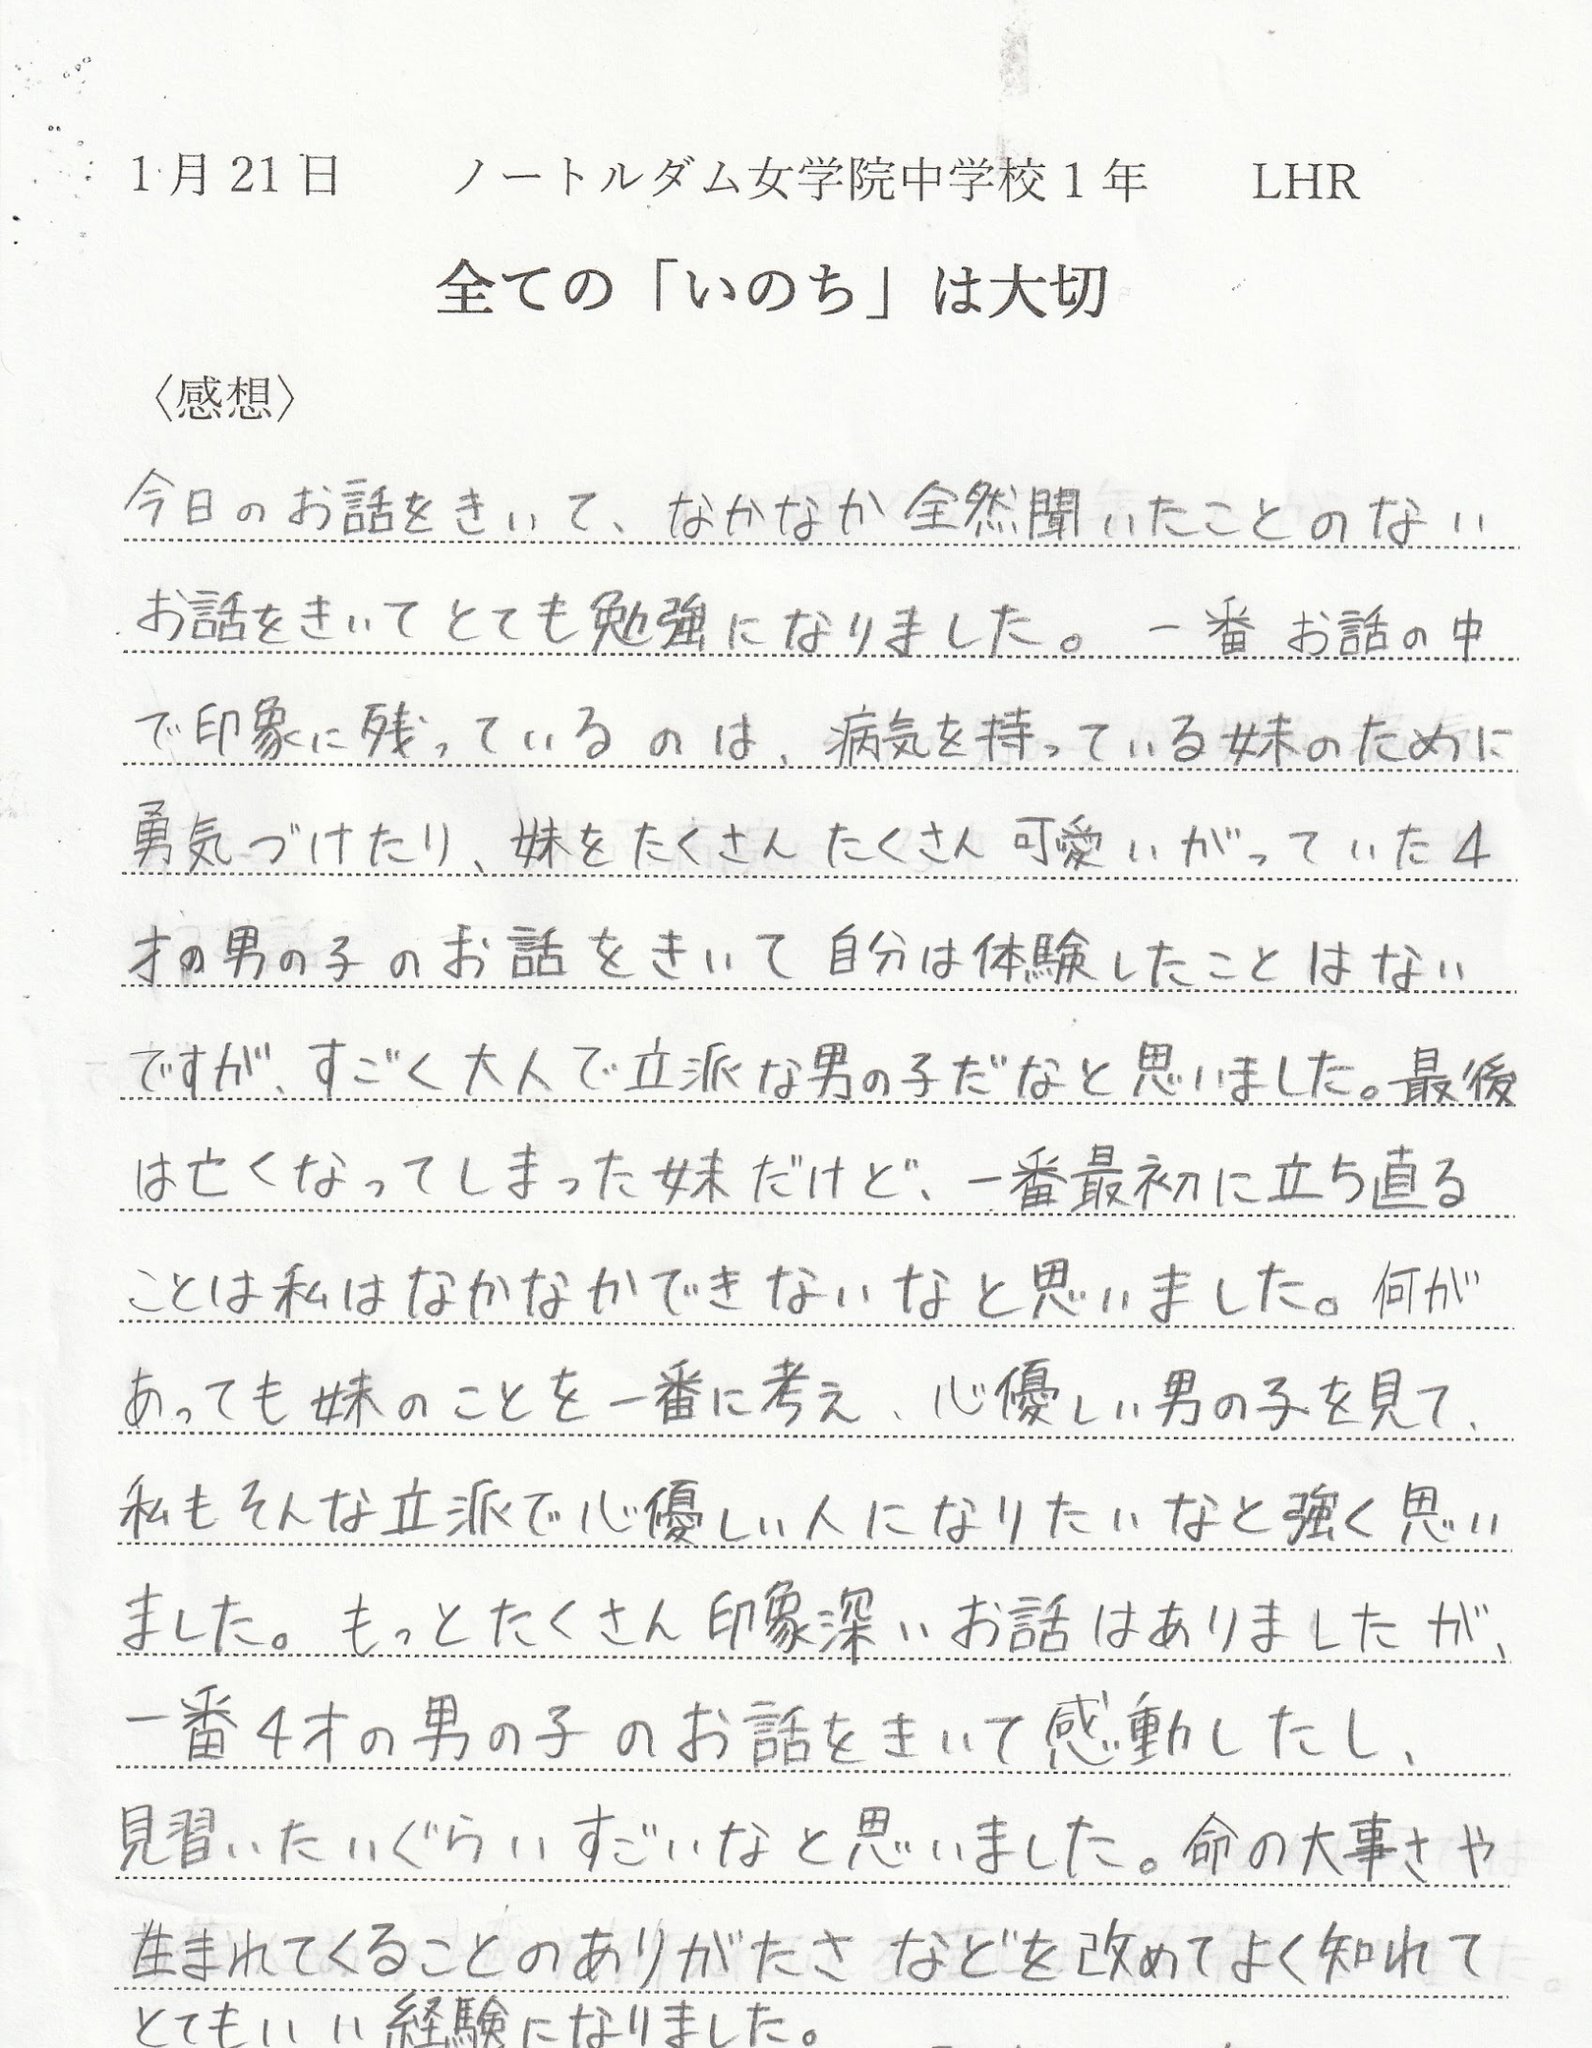 1月21日　ノートルダム女学院中学校1年　LHR
全ての「いのち」は大切
〈感想〉
今日のお話をきいて、なかなか全然聞いたことのない
お話をきいてとても勉強になりました。一番お話の中
で印象に残っているのは、病気を持っている妹のために
勇気づけたり、妹をたくさんたくさん可愛いがっていた4
才の男の子のお話をきいて自分は体験したことはない
ですが、すごく大人で立派な男の子だなと思いました。最後
は亡くなってしまった妹だけど、一番最初に立ち直る
ことは私はなかなかできないなと思いました。何が
あっても妹のことを一番に考え、心優しい男の子を見て、
私もそんな立派で心優しい人になりたいなと強く思い
ました。もっとたくさん印象深いお話はありましたが、
一番4才の男の子のお話をきいて感動したし、
見習いたいぐらいすごいなと思いました。命の大事さや
生まれてくることのありがたさなどを改めてよく知れて
とてもいい経験になりました。